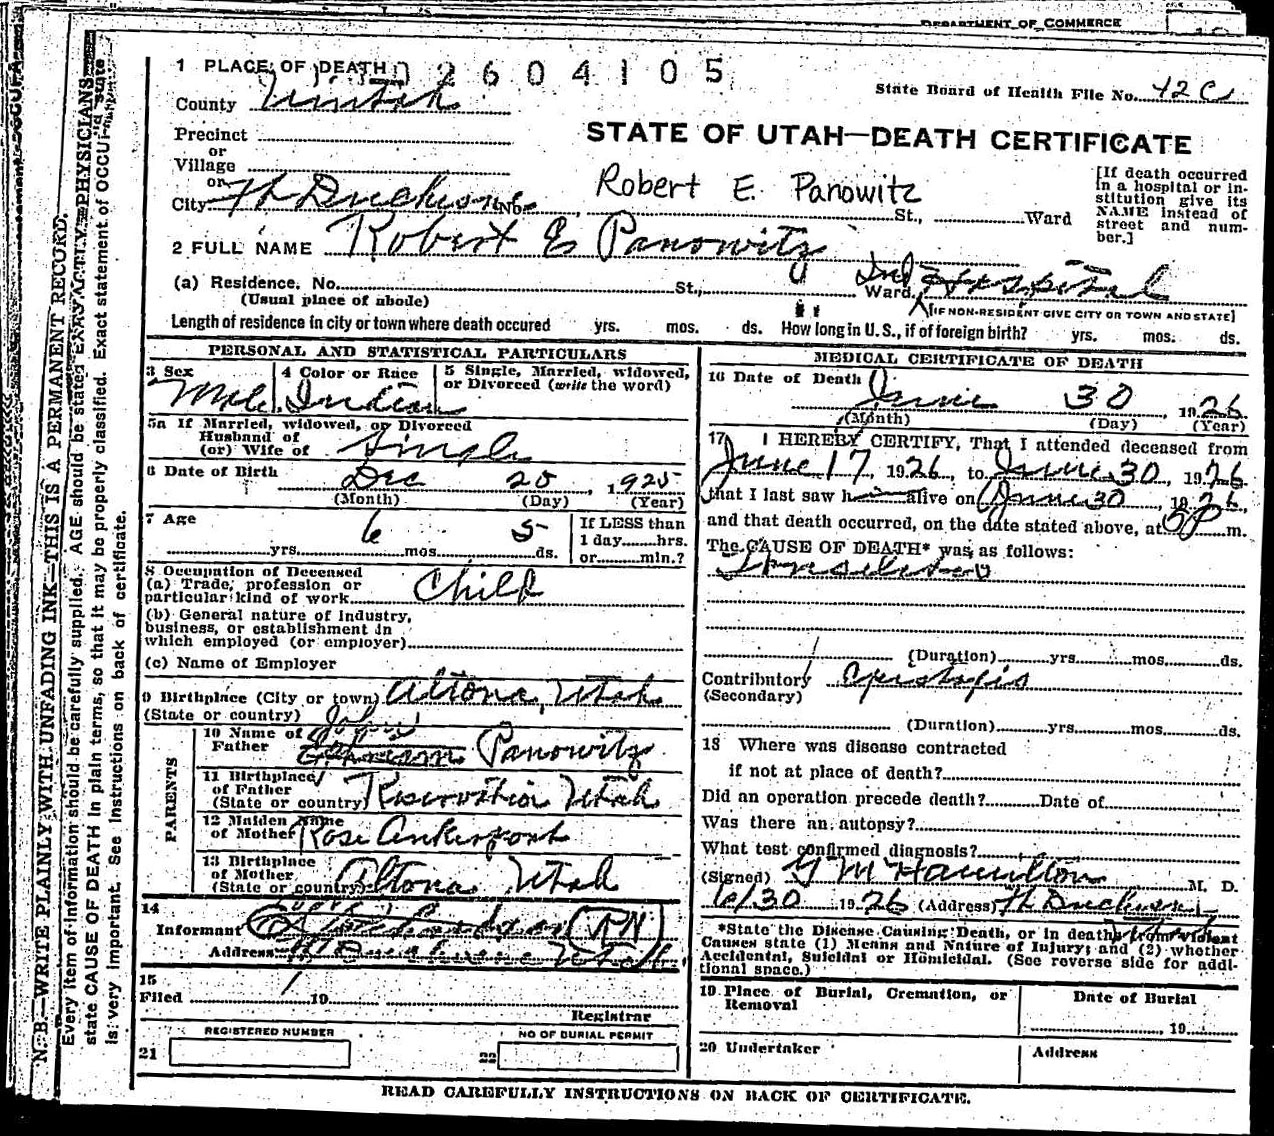 DEPARTMENT OF COMMERCE
1 PLACE OF DEATH 2604105
County Uintah
State Board of Health File No. 42 C
Precinct
or
Village
or
City Ft Duchesne No. St., Ward
STATE OF UTAH—DEATH CERTIFICATE
Robert E. Panowitz
[If death occurred in a hospital or institution give its NAME instead of street and number.]
2 FULL NAME Robert E Panowitz
(a) Residence. No. St., Ward, Ind Hospital
(Usual place of abode)
[IF NON-RESIDENT GIVE CITY OR TOWN AND STATE]
Length of residence in city or town where death occured yrs. mos. ds. How long in U. S., if of foreign birth? yrs. mos. ds.
PERSONAL AND STATISTICAL PARTICULARS
3 Sex Male
4 Color or Race Indian
5 Single, Married, widowed, or Divorced (write the word)
5a If Married, widowed, or Divorced
Husband of
(or) Wife of Single
6 Date of Birth Dec 25, 1925
(Month) (Day) (Year)
7 Age yrs. 6 mos. 5 ds.
If LESS than
1 day hrs.
or min.?
8 Occupation of Deceased
(a) Trade, profession or
particular kind of work Child
(b) General nature of Industry,
business, or establishment in
which employed (or employer)
(c) Name of Employer
9 Birthplace (City or town) Altona, Utah
(State or country)
PARENTS
10 Name of Father John Panowitz
11 Birthplace of Father
(State or country) Reservation Utah
12 Maiden Name
of Mother Rose Ankerpont
13 Birthplace
of Mother
(State or country) Altona Utah
14
Informant Richardson (RN)
Address Ft Duchesne Utah
15
Filed 19
Registrar
REGISTERED NUMBER
21
NO OF BURIAL PERMIT
22
MEDICAL CERTIFICATE OF DEATH
16 Date of Death June 30, 1926
(Month) (Day) (Year)
17 I HEREBY CERTIFY, That I attended deceased from
June 17, 1926, to June 30, 1926
that I last saw h alive on June 30, 1926
and that death occurred, on the date stated above, at P m.
The CAUSE OF DEATH* was as follows:
Tonsilitis
(Duration) yrs. mos. ds.
Contributory
(Secondary)
(Duration) yrs. mos. ds.
18 Where was disease contracted
if not at place of death?
Did an operation precede death? Date of
Was there an autopsy?
What test confirmed diagnosis?
(Signed) G M Hamilton M. D.
6/30 1926 (Address) Ft Duchesne
*State the Disease Causing Death, or in deaths from violent
Causes state (1) Means and Nature of Injury; and (2) whether
Accidental, Suicidal or Homicidal. (See reverse side for addi-
tional space.)
19 Place of Burial, Cremation, or
Removal
Date of Burial
19
20 Undertaker
Address
READ CAREFULLY INSTRUCTIONS ON BACK OF CERTIFICATE.
N. B.—WRITE PLAINLY WITH UNFADING INK—THIS IS A PERMANENT RECORD.
Every item of information should be carefully supplied. AGE should be stated EXACTLY. PHYSICIANS
state CAUSE OF DEATH in plain terms, so that it may be properly classified. Exact statement of OCCUP
is very important. See instructions on back of certificate.